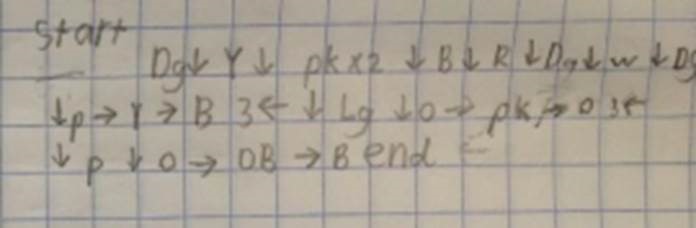 Start
Dg↓ Y↓ pk x2 ↓ B↓ R ↓Dg↓ w ↓ Dg
↓p → Y → B 3← ↓ Lg ↓O → pk → O 3←
↓ p ↓ O → OB → B end